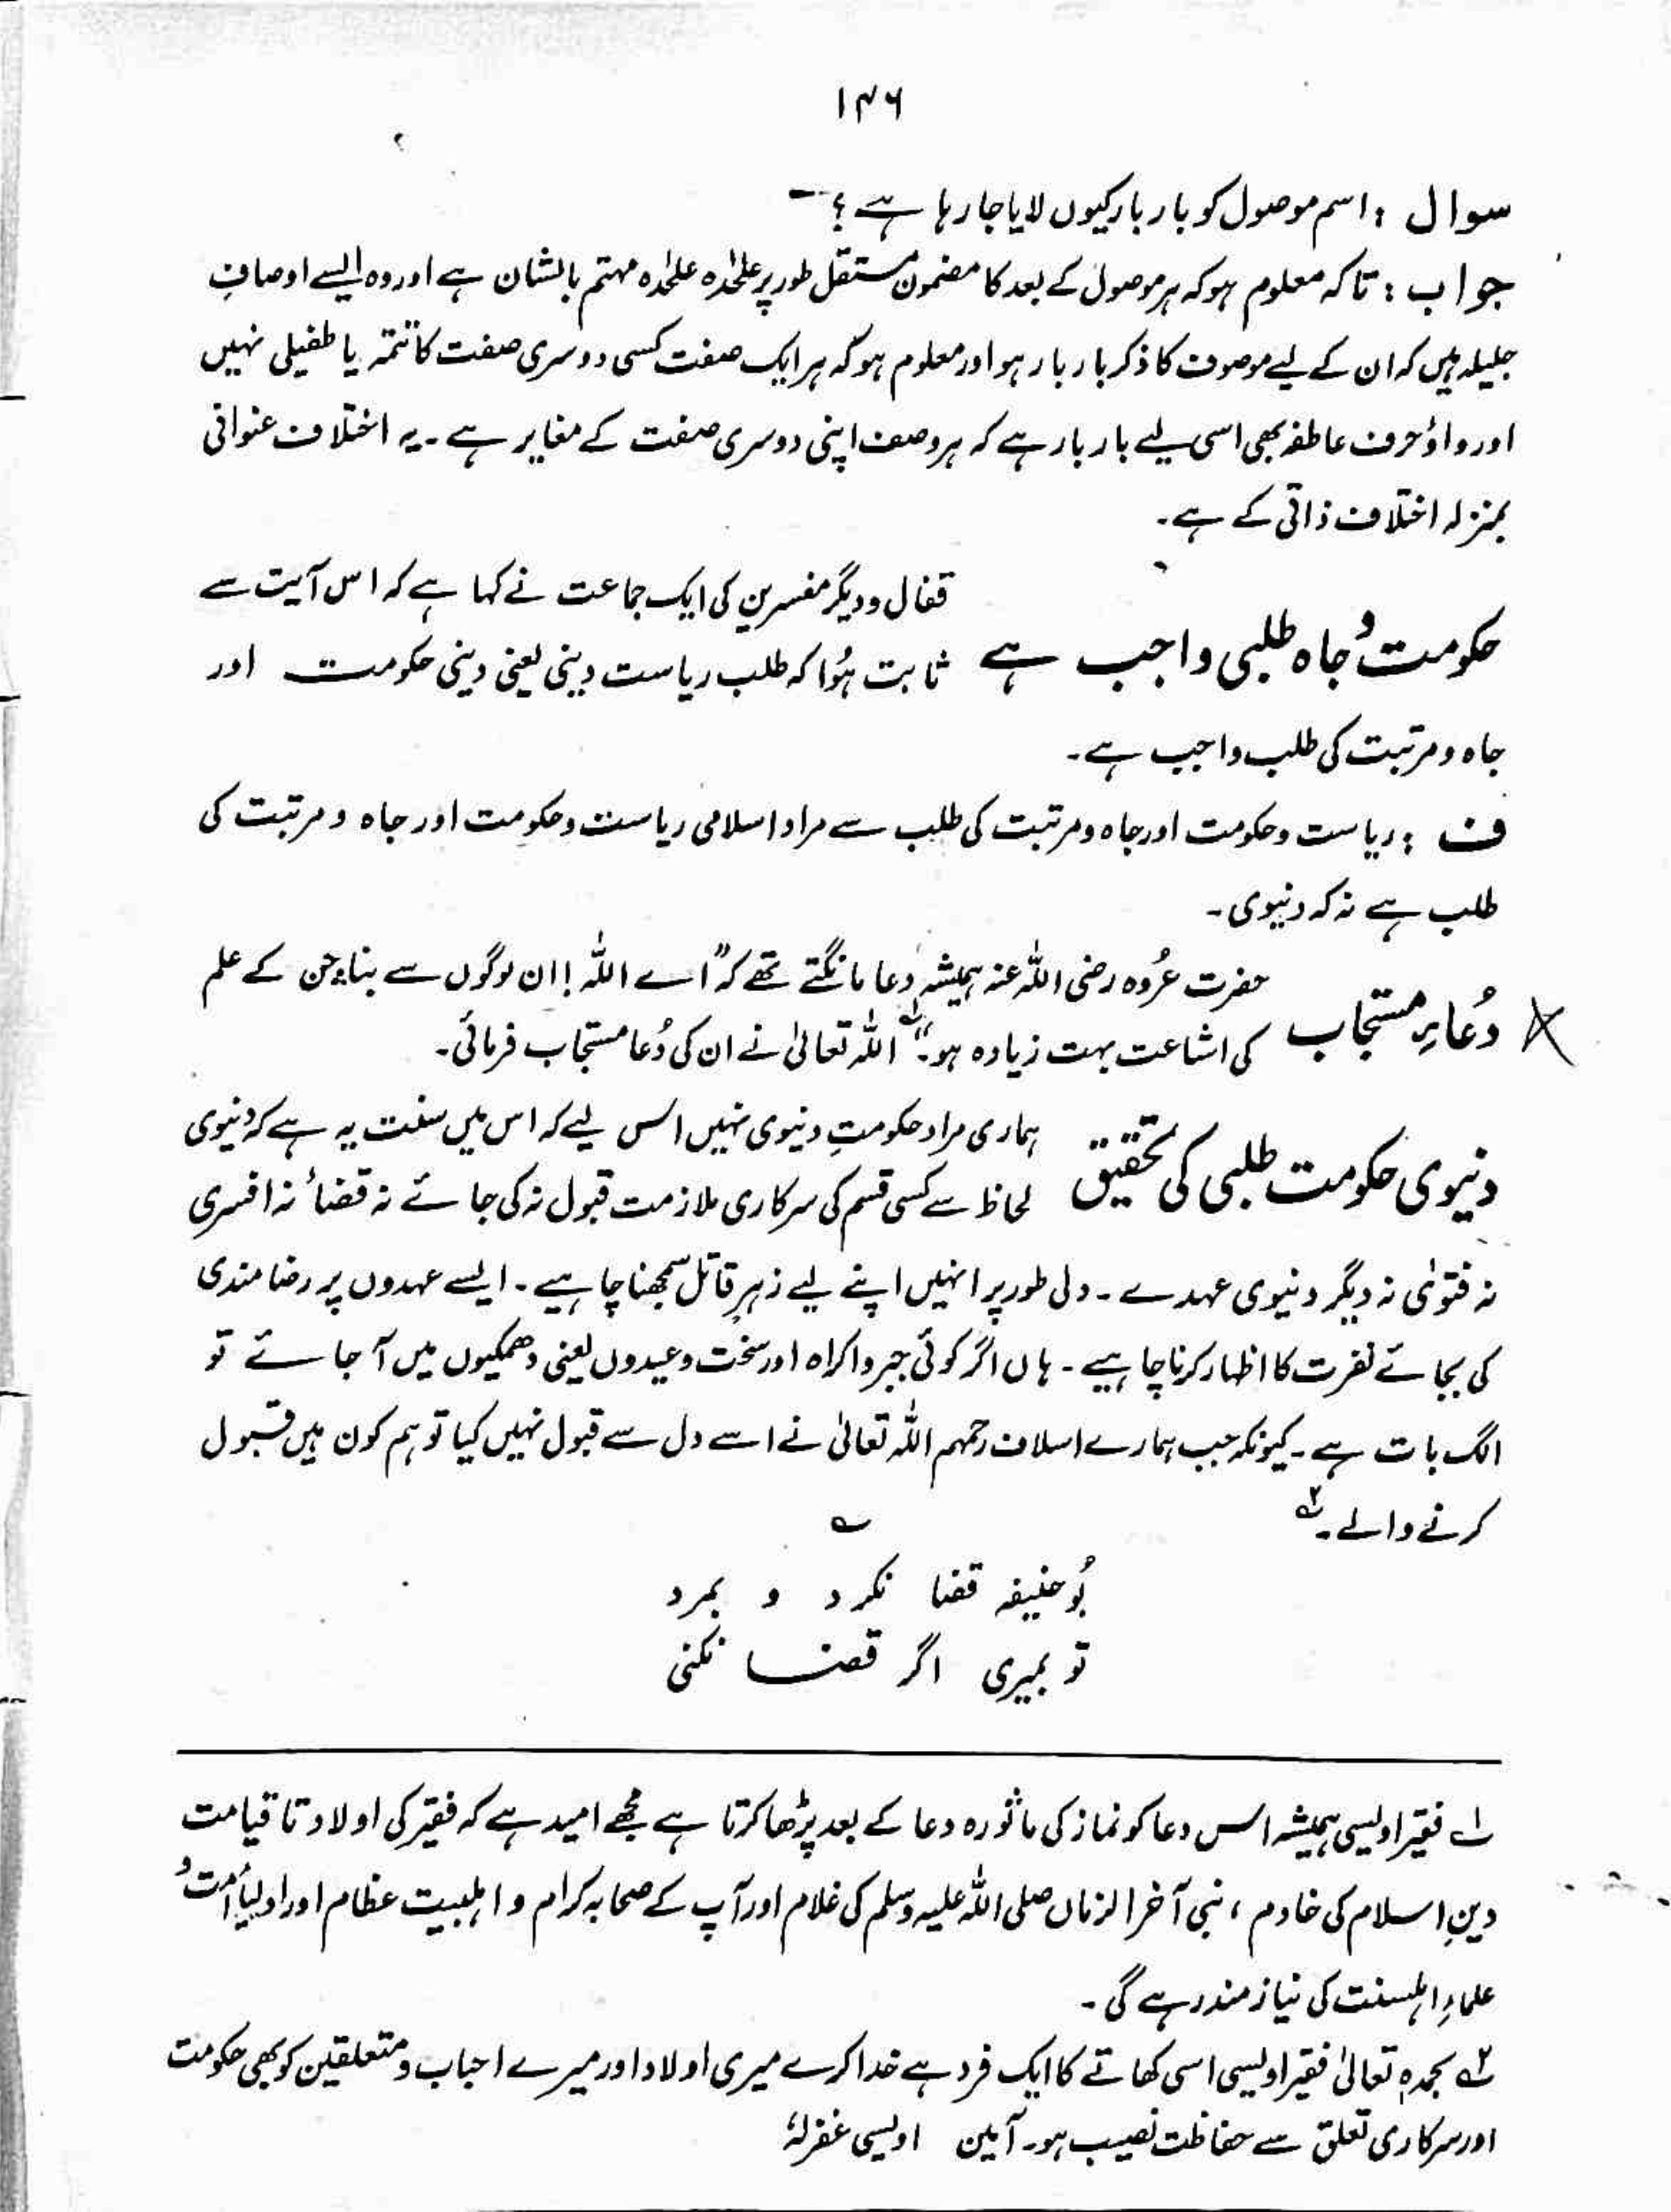 ۱۴۶
سوال : اسم موصول کو بار بار کیوں لایا جا رہا ہے ؟
جواب : تاکہ معلوم ہو کہ ہر موصول کے بعد کا مضمون مستقل طور پر علٰحدہ علٰحدہ مہتم بالشان ہے اور وہ ایسے اوصافِ
جلیلہ ہیں کہ ان کے لیے موصوف کا ذکر بار بار ہو اور معلوم ہو کہ ہر ایک صفت کسی دوسری صفت کا تتمّہ یا طفیلی نہیں
اور واؤ حرف عاطفہ بھی اسی لیے بار بار ہے کہ ہر وصف اپنی دوسری صفت کے مغایر ہے ۔ یہ اختلاف عنوانی
بمنزلہ اختلاف ذاتی کے ہے ۔
قفال و دیگر مفسرین کی ایک جماعت نے کہا ہے کہ اس آیت سے
حکومت و جاہ طلبی واجب ہے ثابت ہُوا کہ طلب ریاست دینی یعنی دینی حکومت اور
جاہ و مرتبت کی طلب واجب ہے ۔
ف : ریاست و حکومت اور جاہ و مرتبت کی طلب سے مراد اسلامی ریاست و حکومت اور جاہ و مرتبت کی
طلب ہے نہ کہ دنیوی ۔
حضرت عُروہ رضی اللہ عنہ ہمیشہ دعا مانگتے تھے کہ "اے اللہ ! ان لوگوں سے بنا جن کے علم
دُعاءِ مستجاب کی اشاعت بہت زیادہ ہو ۔" لہ اللہ تعالیٰ نے ان کی دُعا مستجاب فرمائی ۔
ہماری مراد حکومتِ دنیوی نہیں اس لیے کہ اس میں سنت یہ ہے کہ دنیوی
دنیوی حکومت طلبی کی تحقیق لحاظ سے کسی قسم کی سرکاری ملازمت قبول نہ کی جائے نہ قضاءً نہ افسری
نہ فتوٰی نہ دیگر دنیوی عہدے ۔ دلی طور پر انہیں اپنے لیے زہرِ قاتل سمجھنا چاہیے ۔ ایسے عہدوں پر رضامندی
کی بجائے نفرت کا اظہار کرنا چاہیے ۔ ہاں اگر کوئی جبر و اکراہ اور سخت وعیدوں یعنی دھمکیوں میں آ جائے تو
الگ بات ہے ۔ کیونکہ جب ہمارے اسلاف رحمہم اللہ تعالیٰ نے اسے دل سے قبول نہیں کیا تو ہم کون ہیں قبول
کرنے والے ۔ ۲ہ
؎
بُو حنیفہ قضا نکرد و بمرد
تو بمیری اگر قضا نکنی
لہ فقیر اویسی ہمیشہ اس دعا کو نماز کی ماثورہ دعا کے بعد پڑھا کرتا ہے مجھے امید ہے کہ فقیر کی اولاد تا قیامت
دینِ اسلام کی خادم ، نبی آخر الزماں صلی اللہ علیہ وسلم کی غلام اور آپ کے صحابہ کرام و اہلبیت عظام اور اولیأ اُمت و
علماءِ اہلسنت کی نیازمند رہے گی ۔
۲ہ بحمدہٖ تعالیٰ فقیر اویسی اسی کھاتے کا ایک فرد ہے خدا کرے میری اولاد اور میرے احباب و متعلقین کو بھی حکومت
اور سرکاری تعلق سے حفاظت نصیب ہو ۔ آمین اویسی غفرلہٗ